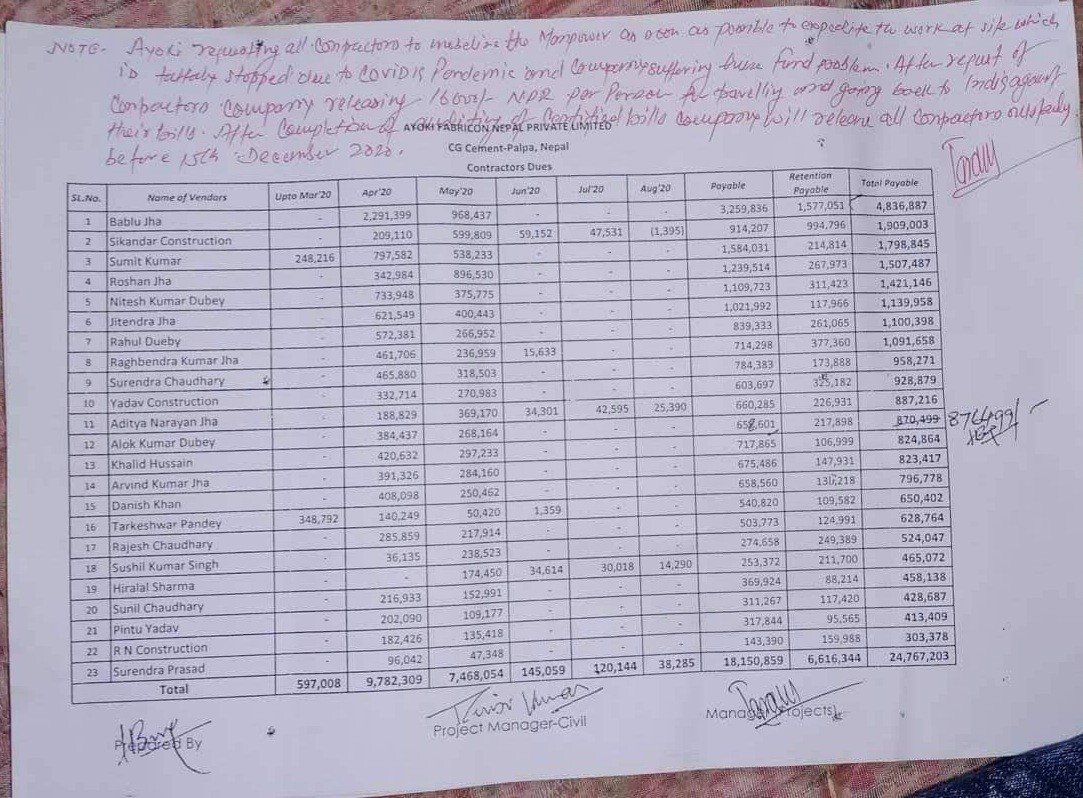 NOTE- Ayoki requesting all Contractors to mobelize the Manpower as soon as possible to expedite the work at site which
is tottaly stopped due to COVID19 Pandemic and Company suffering fund problem. After request of
Contractors Company releasing 16000/- NPR per Person for travelling and going back to India against
their bills. After Completion of auditing of Certified bills Company will release all Contractors outs
before 15th December 2020.
AYOKI FABRICON NEPAL PRIVATE LIMITED
CG Cement-Palpa, Nepal
Contractors Dues
SL.No. Name of Vendors Upto Mar'20 Apr'20 May'20 Jun'20 Jul'20 Aug'20 Payable Retention Payable Total Payable
1 Bablu Jha - 2,291,399 968,437 - - - 3,259,836 1,577,051 4,836,887
2 Sikandar Construction - 209,110 599,809 59,152 47,531 (1,395) 914,207 994,796 1,909,003
3 Sumit Kumar 248,216 797,582 538,233 - - - 1,584,031 214,814 1,798,845
4 Roshan Jha - 342,984 896,530 - - - 1,239,514 267,973 1,507,487
5 Nitesh Kumar Dubey - 733,948 375,775 - - - 1,109,723 311,423 1,421,146
6 Jitendra Jha - 621,549 400,443 - - - 1,021,992 117,966 1,139,958
7 Rahul Dueby - 572,381 266,952 - - - 839,333 261,065 1,100,398
8 Raghbendra Kumar Jha - 461,706 236,959 15,633 - - 714,298 377,360 1,091,658
9 Surendra Chaudhary - 465,880 318,503 - - - 784,383 173,888 958,271
10 Yadav Construction - 332,714 270,983 - - - 603,697 325,182 928,879
11 Aditya Narayan Jha - 188,829 369,170 34,301 42,595 25,390 660,285 226,931 887,216
12 Alok Kumar Dubey - 384,437 268,164 - - - 658,601 217,898 870,499 876499/-
13 Khalid Hussain - 420,632 297,233 - - - 717,865 106,999 824,864
14 Arvind Kumar Jha - 391,326 284,160 - - - 675,486 147,931 823,417
15 Danish Khan - 408,098 250,462 - - - 658,560 138,218 796,778
16 Tarkeshwar Pandey 348,792 140,249 50,420 1,359 - - 540,820 109,582 650,402
17 Rajesh Chaudhary - 285,859 217,914 - - - 503,773 124,991 628,764
18 Sushil Kumar Singh - 36,135 238,523 - - - 274,658 249,389 524,047
19 Hiralal Sharma - - 174,450 34,614 30,018 14,290 253,372 211,700 465,072
20 Sunil Chaudhary - 216,933 152,991 - - - 369,924 88,214 458,138
21 Pintu Yadav - 202,090 109,177 - - - 311,267 117,420 428,687
22 R N Construction - 182,426 135,418 - - - 317,844 95,565 413,409
23 Surendra Prasad - 96,042 47,348 - - - 143,390 159,988 303,378
Total 597,008 9,782,309 7,468,054 145,059 120,144 38,285 18,150,859 6,616,344 24,767,203
Prepared By
Project Manager-Civil
Manager Projects